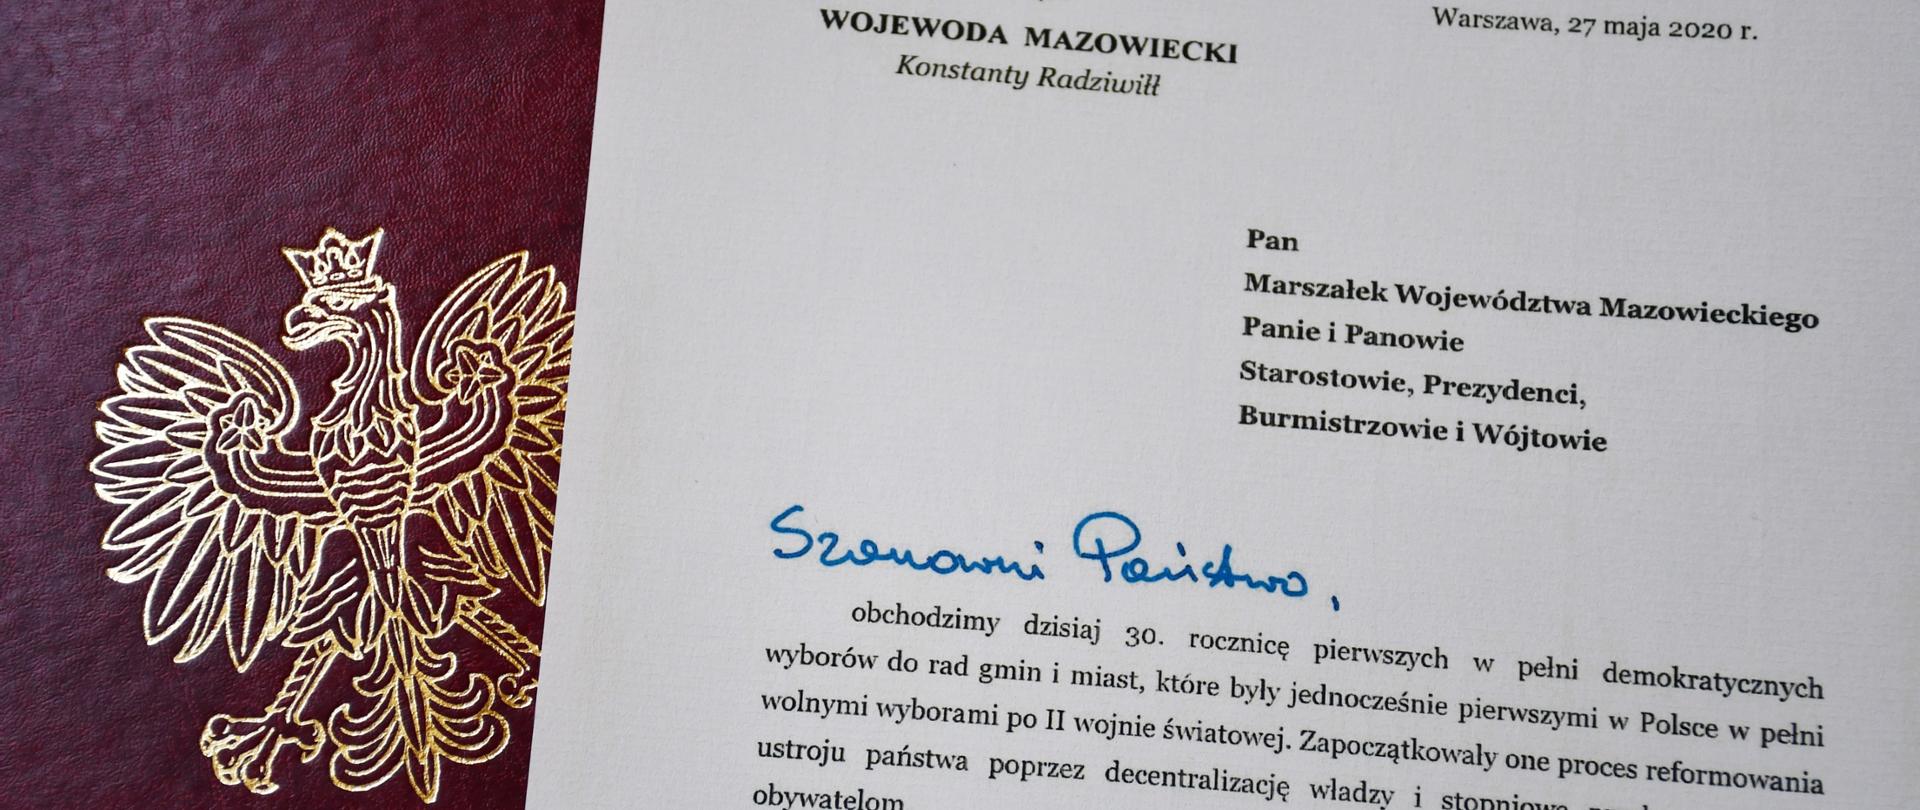 WOJEWODA MAZOWIECKI
Konstanty Radziwiłł
Warszawa, 27 maja 2020 r.
Pan
Marszałek Województwa Mazowieckiego
Panie i Panowie
Starostowie, Prezydenci,
Burmistrzowie i Wójtowie
Szanowni Państwo,
obchodzimy dzisiaj 30. rocznicę pierwszych w pełni demokratycznych
wyborów do rad gmin i miast, które były jednocześnie pierwszymi w Polsce w pełni
wolnymi wyborami po II wojnie światowej. Zapoczątkowały one proces reformowania
ustroju państwa poprzez decentralizację władzy i stopniowe
obywatelom